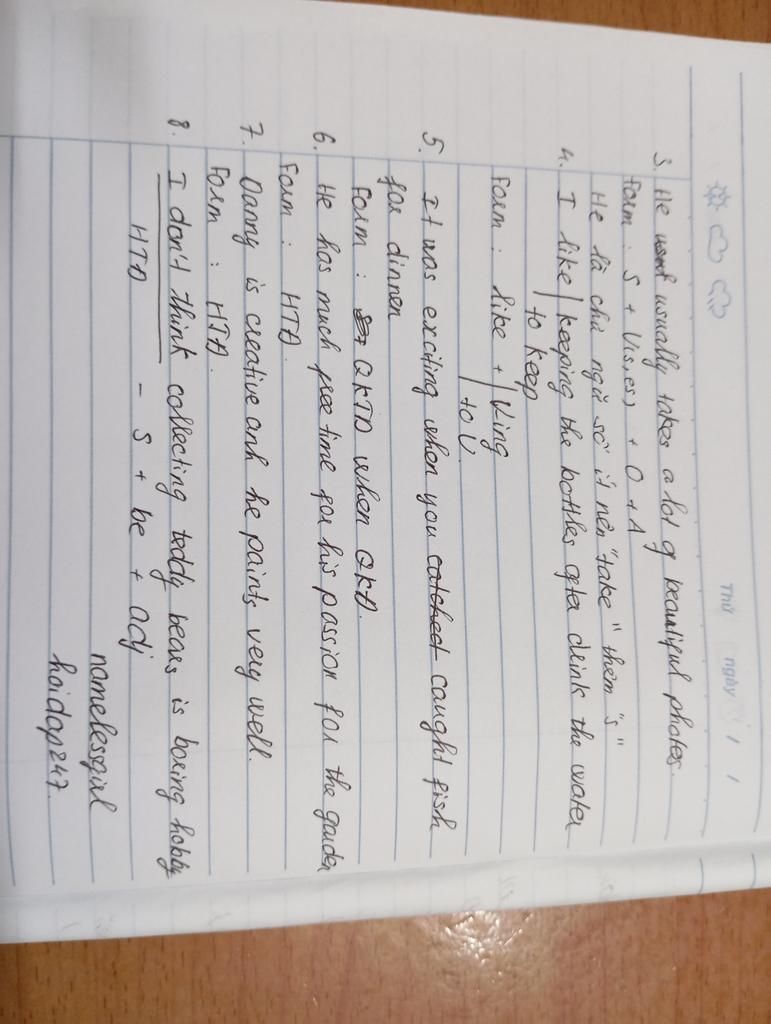 Thứ ngày / /
3. He usually takes a lot of beautiful photes.
Form : S + V(s,es) + O + A
He là chủ ngữ số ít nên "take" thêm "s"
4. I like / keeping the bottles after drink the water
to keep
Form : like + / Ving
to V
5. It was exciting when you catched caught fish
for dinner
Form : QKTD when QKD.
6. He has much free time for his passion for the garden
Form : HTD
7. Danny is creative anh he paints very well.
Form : HTD.
8. I don't think collecting teddy bears is boring hobby
HTD - S + be + adj
namelessgirl
hoidap247.